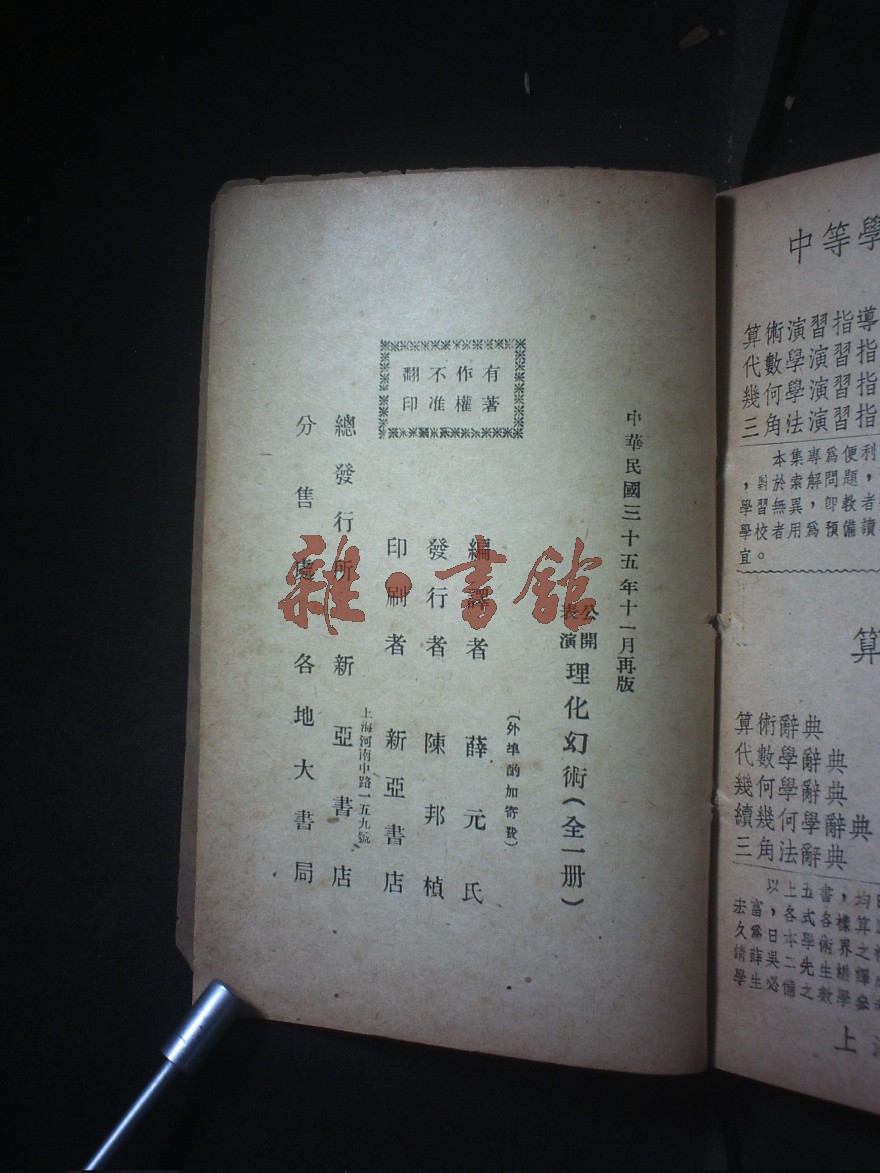 中華民國三十五年十一月再版
公開表演 理化幻術(全一册)
(外埠酌加寄費)
編譯者 薛元氏
發行者 陳邦楨
印刷者 新亞書店
上海河南中路一五九號
總發行所 新亞書店
分售處 各地大書局
有著作權不准翻印
雜·書館
中等學
算術演習指導
代數學演習指
幾何學演習指
三角法演習指
本集專爲便利
,對於索解問題,
學習無異,卽敎者
學校者用爲預備讀
宜。
算
算術辭典
代數學辭典
幾何學辭典
續幾何學辭典
三角法辭典
以上五書,均
未富,各式各樣算
久爲日本學術界之
請薛吳二先生繼譯
學生必備之數學參
上